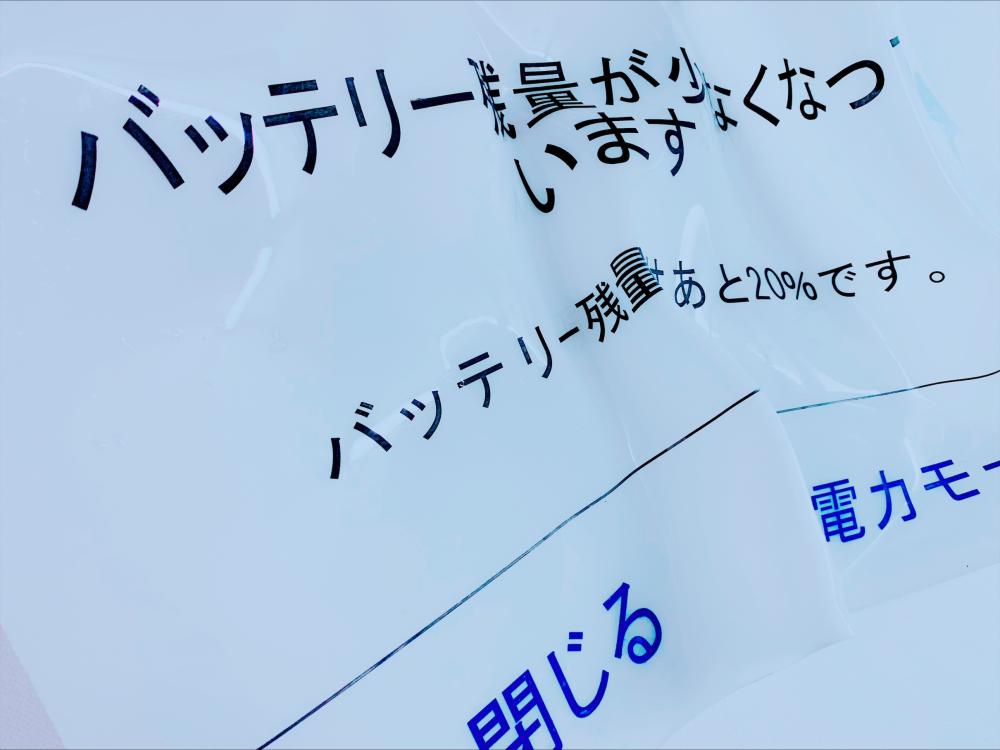 バッテリー残量が少なくなつ
います
バッテリー残量はあと20%です。
閉じる
電力モー